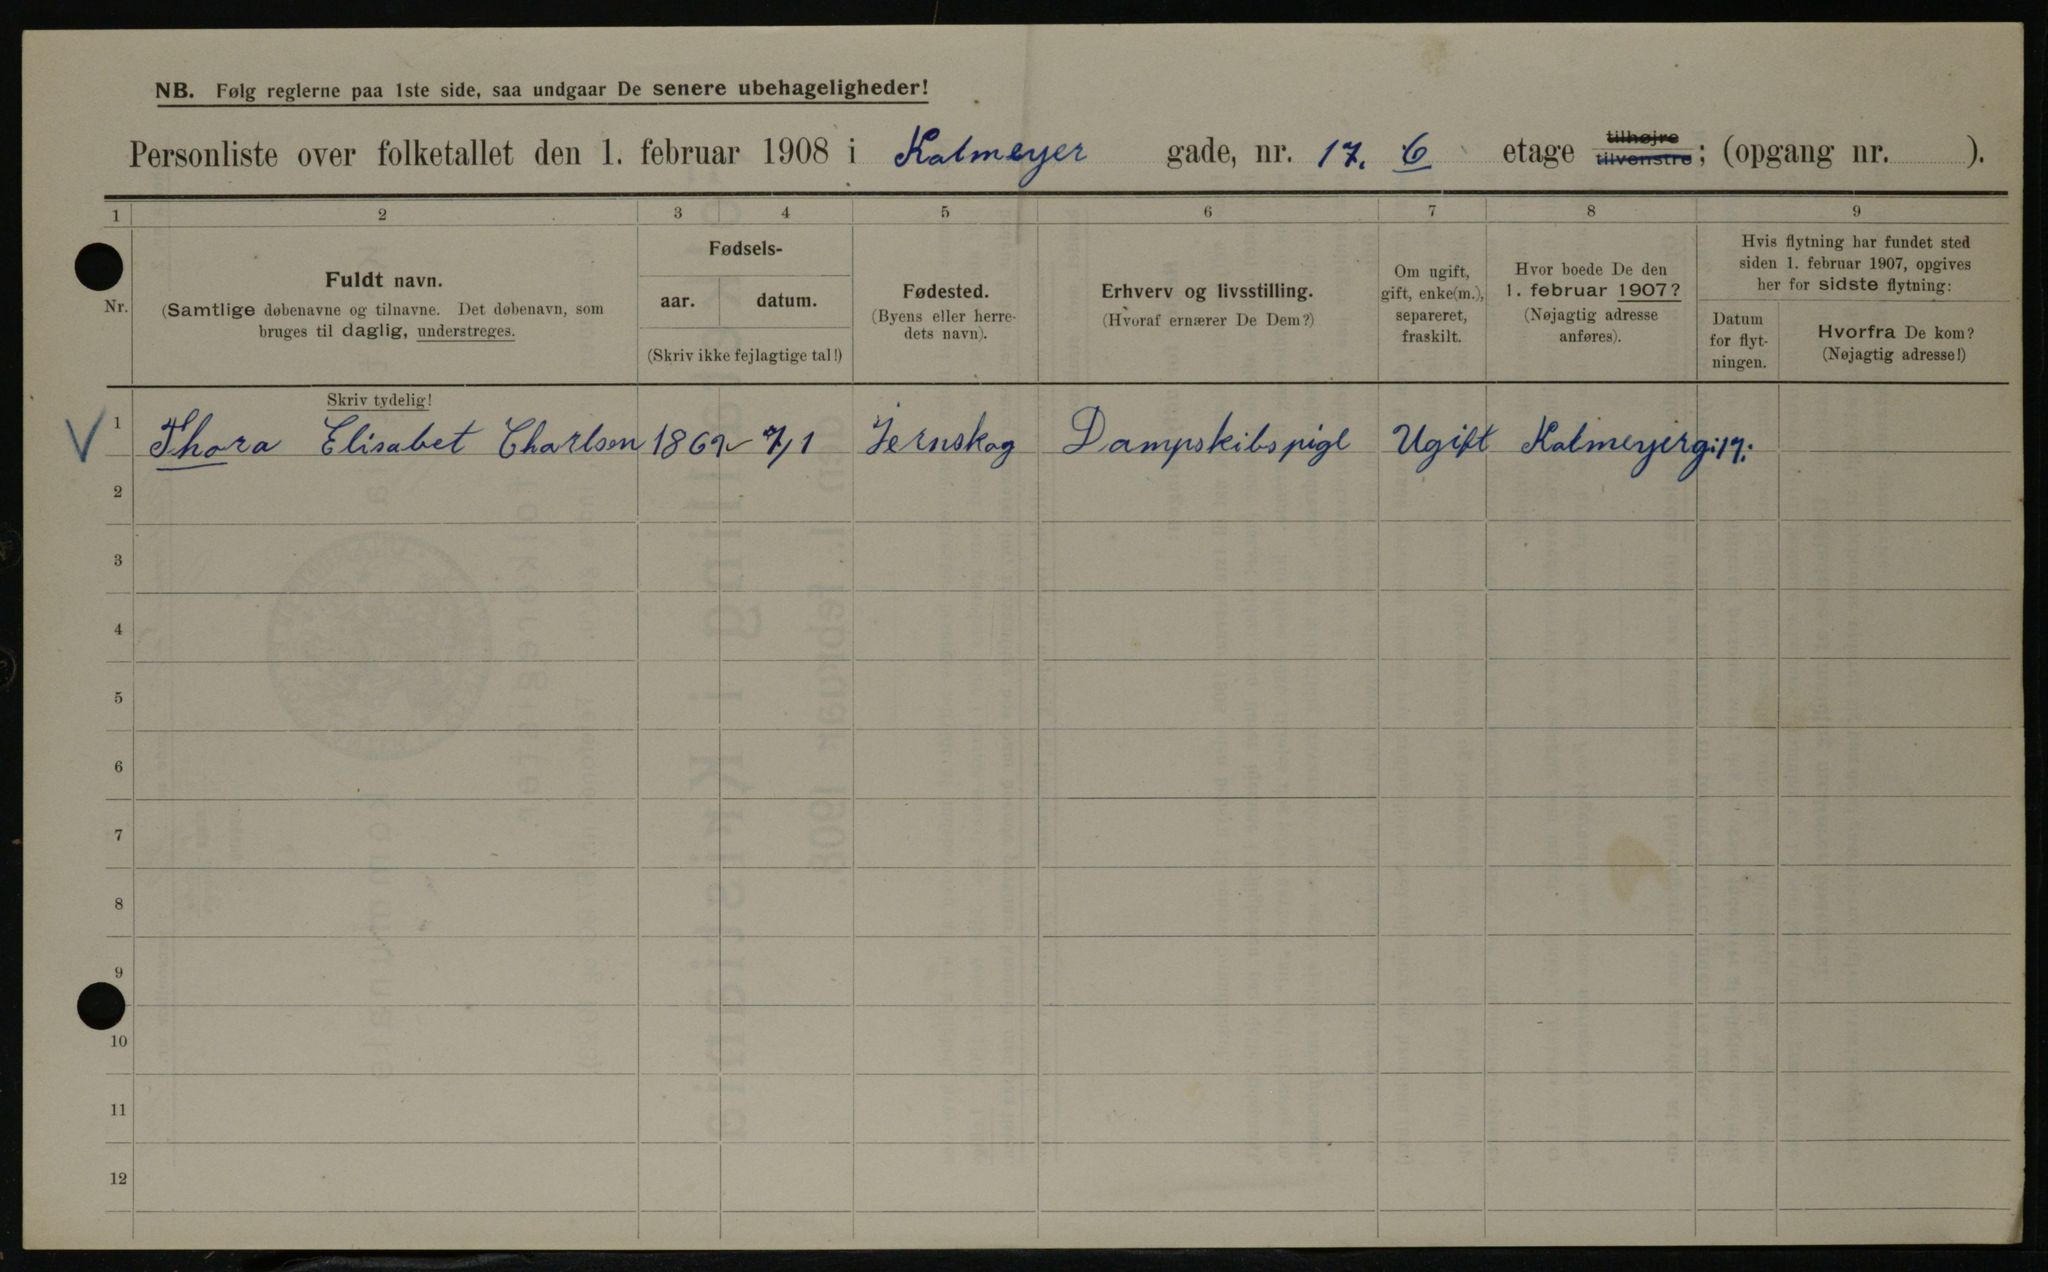 NB. Følg reglerne paa 1ste side, saa undgaar De senere ubehageligheder!
Personliste over folketallet den 1. februar 1908 i Kalmeyer gade, nr. 17. 6 etage tilhøjre tilvenstre; (opgang nr. ).
1 2 3 4 5 6 7 8 9
Nr.
Fuldt navn.
(Samtlige døbenavne og tilnavne. Det døbenavn, som
bruges til daglig, understreges.
Skriv tydelig!
Fødsels-
aar. datum.
(Skriv ikke fejlagtige tal!)
Fødested.
(Byens eller herre-
dets navn).
Erhverv og livsstilling.
(Hvoraf ernærer De Dem?)
Om ugift,
gift, enke(m.),
separeret,
fraskilt.
Hvor boede De den
1. februar 1907?
(Nøjagtig adresse
anføres).
Hvis flytning har fundet sted
siden 1. februar 1907, opgives
her for sidste flytning:
Datum
for flyt-
ningen.
Hvorfra De kom?
(Nøjagtig adresse!)
V 1 Thora Elisabet Charlsen 1862 7/1 Jernskog Dampskibspige Ugift Kalmeyerg: 17:
2
3
4
5
6
7
8
9
10
11
12